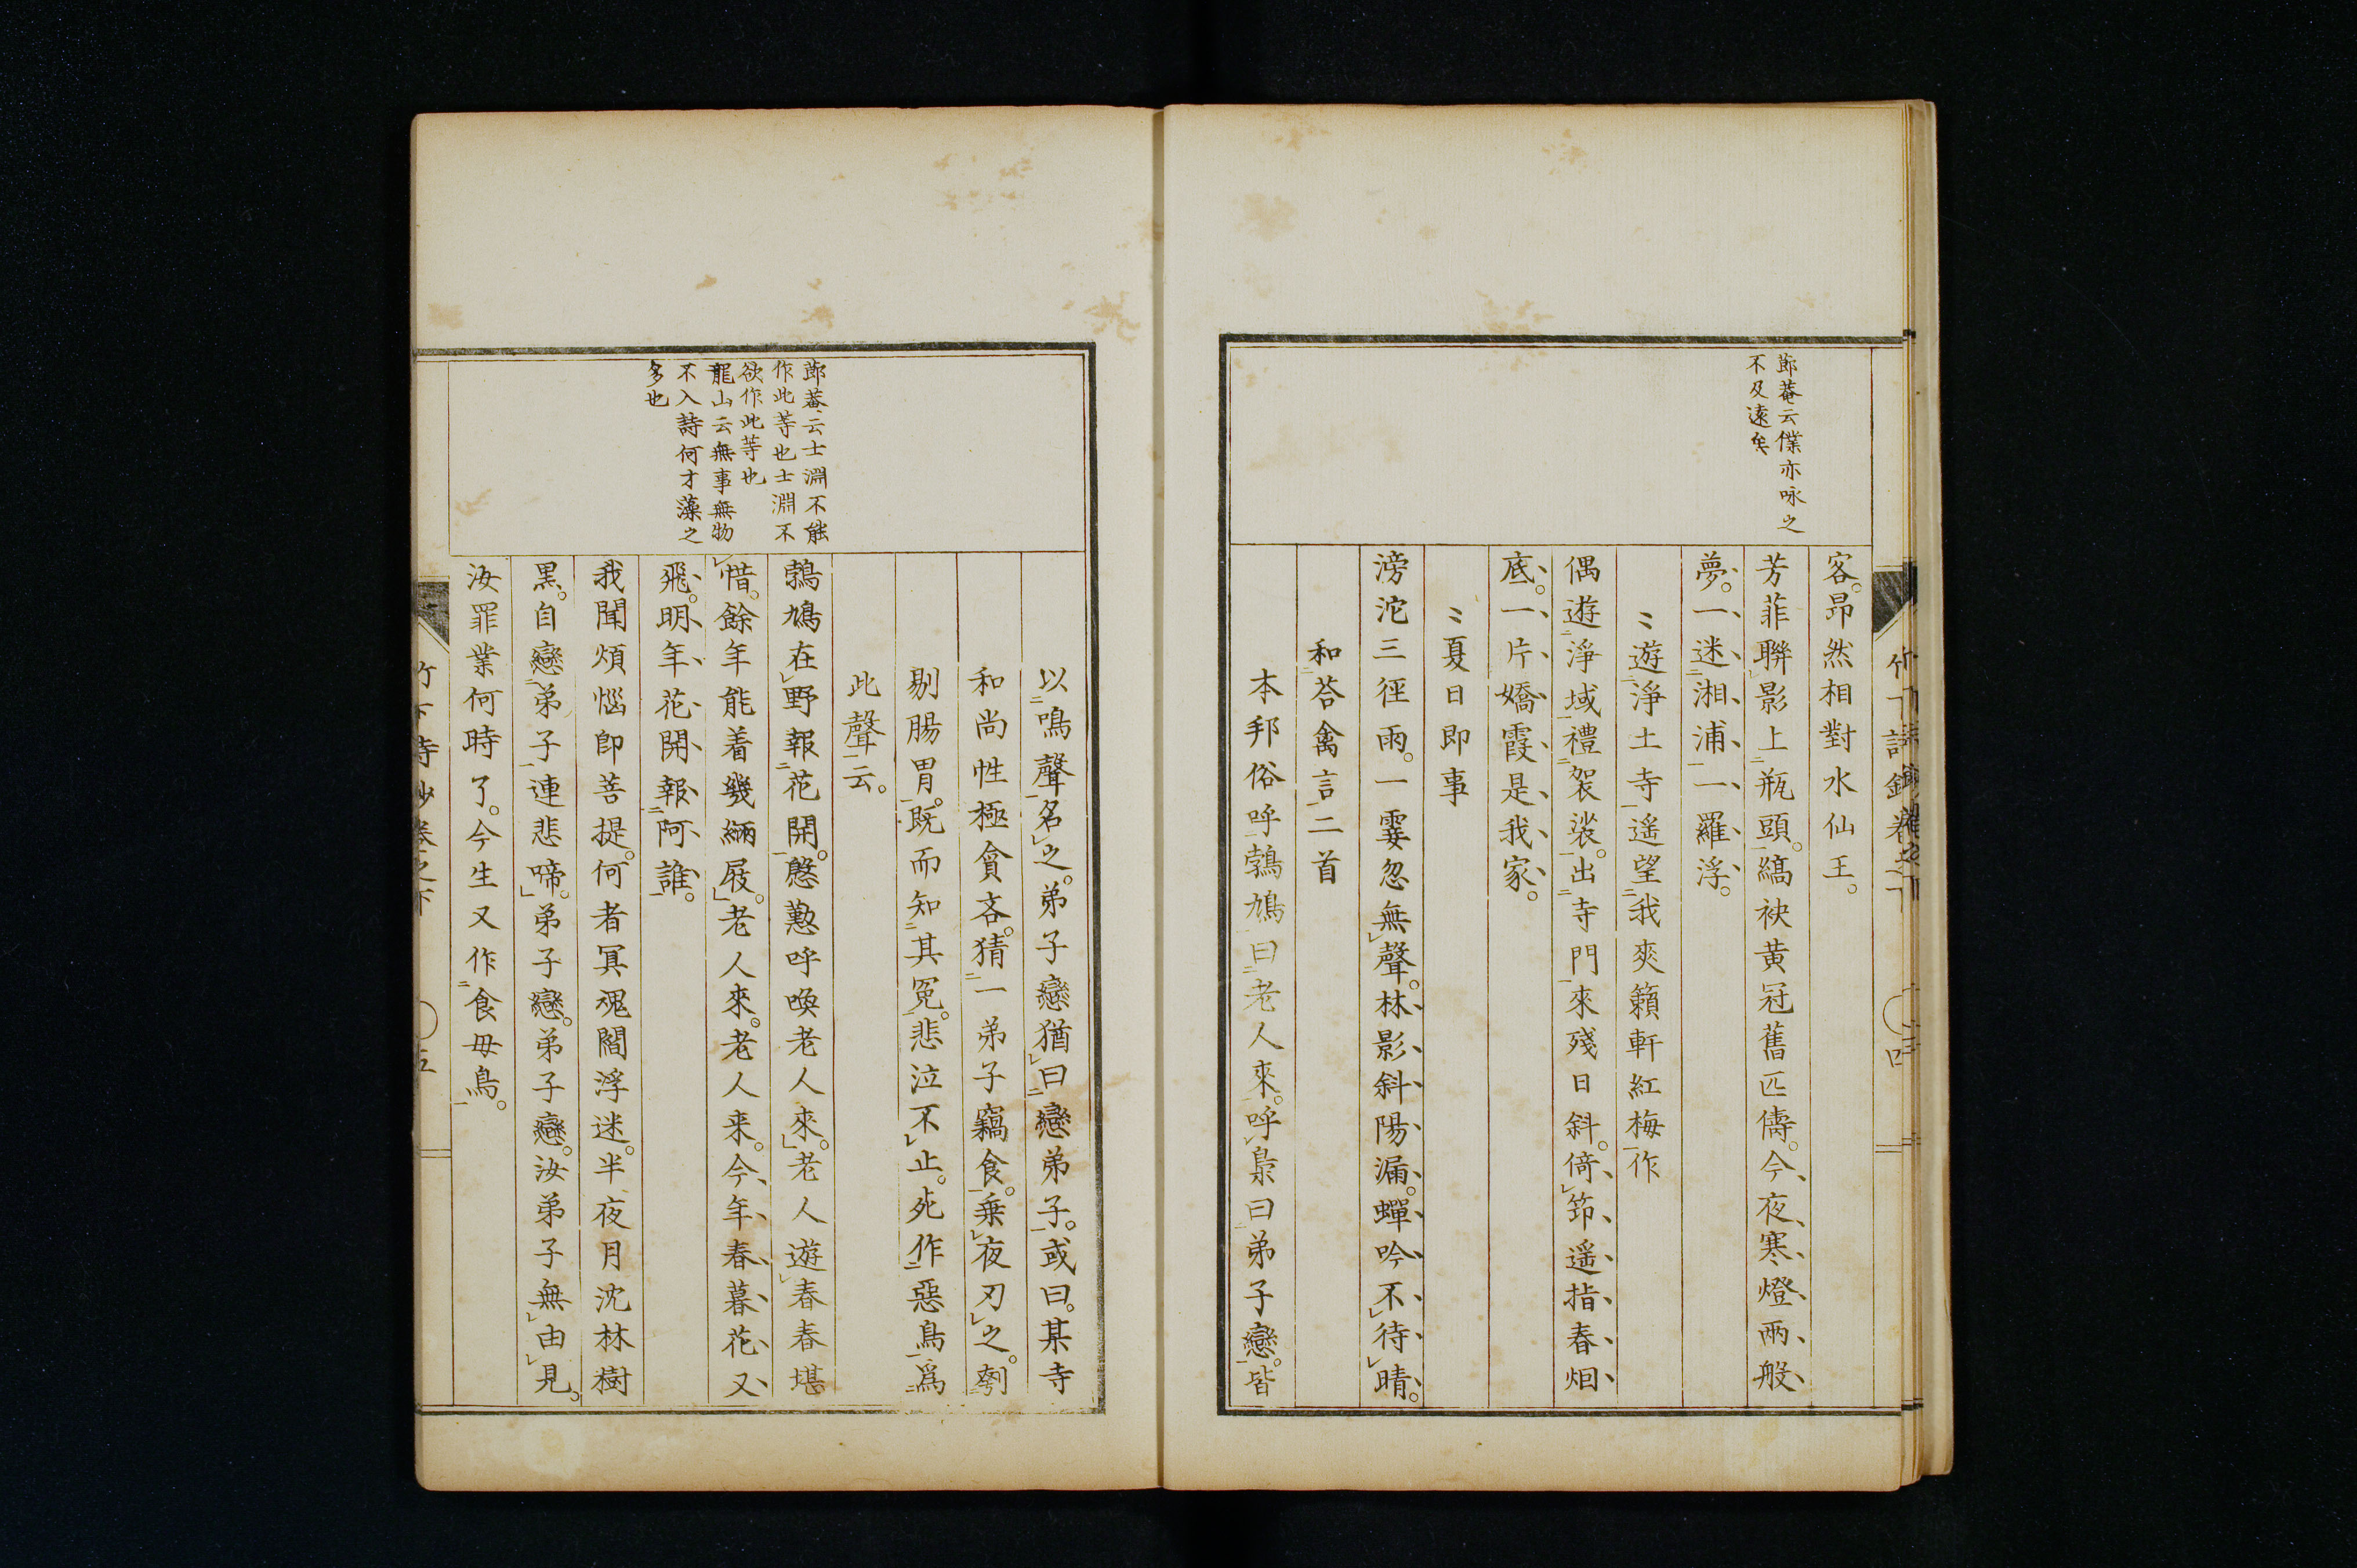 節菴云僕亦咏之
不及遠矣
客。昂然相對水仙王。
芳菲聯影上瓶頭。縞袂黃冠舊匹儔。今夜寒燈兩般
夢。一迷湘浦一羅浮。
〻遊淨土寺遥望我爽籟軒紅梅作
偶遊淨域禮袈裟。出寺門來殘日斜。倚筇遥指春烟
底。一片嬌霞是我家。
〻夏日即事
滂沱三徑雨。一霎忽無聲。林影斜陽漏。蟬吟不待晴。
和荅禽言二首
本邦俗呼鶉鳩曰老人來。呼梟曰弟子戀。皆
竹下詩鈔卷之下 四
節菴云士淵不能
作此等也士淵不
欲作此等也
龍山云無事無物
不入詩何才藻之
多也
以鳴聲名之。弟子戀猶曰戀弟子。或曰。某寺
和尚性極貪吝。猜一弟子竊食。乗夜刃之。刳
剔腸胃。既而知其冤。悲泣不止。死作惡鳥爲
此聲云。
鶉鳩在野報花開。慇懃呼喚老人來。老人遊春春堪
惜。餘年能着幾緉屐。老人來。老人来。今年春暮花又
飛。明年花開報阿誰。
我聞煩惱即菩提。何者冥魂閻浮迷。半夜月沈林樹
黒。自戀弟子連悲啼。弟子戀。弟子戀。汝弟子無由見。
汝罪業何時了。今生又作食母鳥。
竹下詩鈔卷之下 五